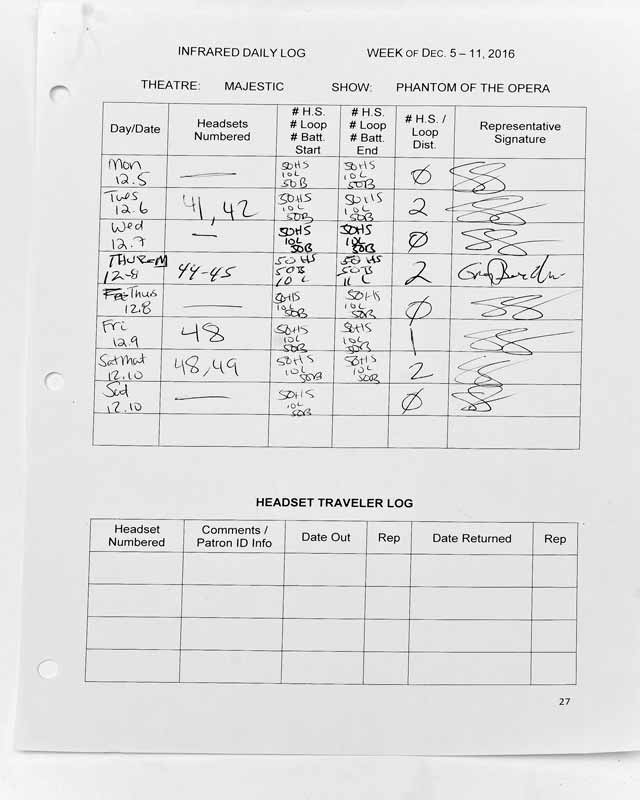 INFRARED DAILY LOG WEEK OF DEC. 5 – 11, 2016
THEATRE: MAJESTIC SHOW: PHANTOM OF THE OPERA
Day/Date
Headsets
Numbered
# H.S.
# Loop
# Batt.
Start
# H.S.
# Loop
# Batt.
End
# H.S. /
Loop
Dist.
Representative
Signature
Mon
12.5
—
50HS
10L
50B
50HS
10L
50B
Ø
Tues
12.6
41,42
50HS
10L
50B
50HS
10L
50B
2
Wed
12.7
—
50HS
10L
50B
50HS
10L
50B
Ø
THURS M
12-8
44-45
50 HS
50B
10 L
50 HS
50B
2
Thurs
12.8
—
50HS
10L
50B
50HS
10L
50B
Ø
Fri
12.9
48
50HS
10L
50B
50HS
10L
50B
1
Sat mat
12.10
48,49
50HS
10L
50B
50HS
10L
50B
2
12.10
—
50HS
10L
50B
Ø
HEADSET TRAVELER LOG
Headset
Numbered
Comments /
Patron ID Info
Date Out
Rep
Date Returned
Rep
27